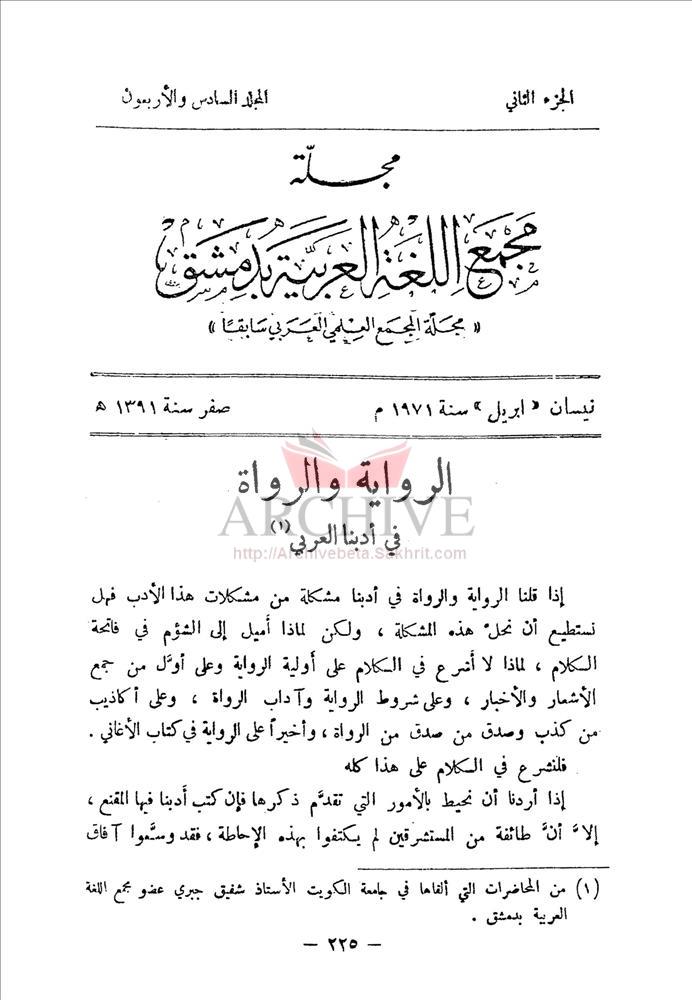 الجزء الثاني
المجلد السادس والأربعون
مجلّة
مجمع اللغة العربية بدمشق
« مجلة المجمع العلمي العربي سابقًا »
نيسان « ابريل » سنة ١٩٧١ م
صفر سنة ١٣٩١ ھ
الرواية والرواة
ARCHIVE
في أدبنا العربي (١)
http://Archivebeta.Sakhrit.com
إذا قلنا الرواية والرواة في أدبنا مشكلة من مشكلات هذا الأدب فهل
نستطيع أن نحلّ هذه المشكلة ، ولكن لماذا أميل إلى الشؤم في فاتحة
الكلام ، لماذا لا أشرع في الكلام على أولية الرواية وعلى أوَّل من جمع
الأشعار والأخبار ، وعلى شروط الرواية وآداب الرواة ، وعلى أكاذيب
من كذب وصدق من صدق من الرواة ، وأخيراً على الرواية في كتاب الأغاني .
فلنشرع في الكلام على هذا كله
إذا أردنا أن نحيط بالأمور التي تقدَّم ذكرها فإن كتب أدبنا فيها المقنع ،
إلاَّ أنَّ طائفة من المستشرقين لم يكتفوا بهذه الإحاطة ، فقد وسَّعوا آفاق
(١) من المحاضرات التي ألقاها في جامعة الكويت الأستاذ شفيق جبري عضو مجمع اللغة
العربية بدمشق .
— ٢٢٥ —